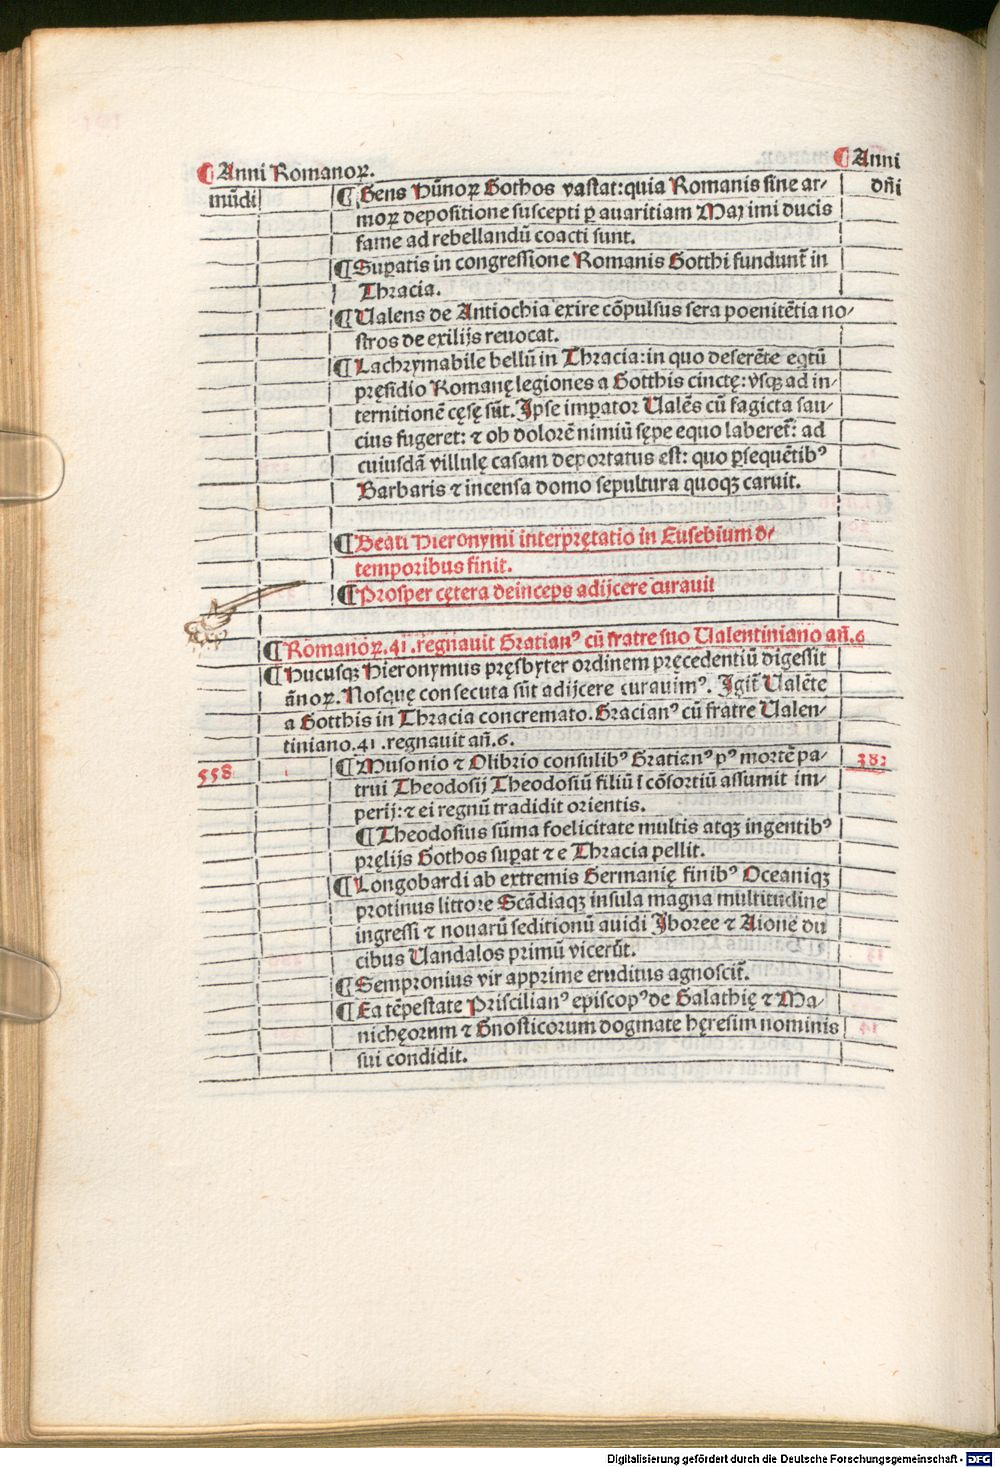 ¶ Anni Romanoꝝ. ¶ Anni
mūdi ¶ Gens Hūnoꝝ Gothos vastat: quia Romanis sine ar- dn̄i
moꝝ depositione suscepti ꝑ auaritiam Maximi ducis
fame ad rebellandū coacti sunt.
¶ Suꝑatis in congressione Romanis Gotthi fundunt̄ in
Thracia.
¶ Ualens de Antiochia exire cōpulsus sera poenitētia no-
stros de exilijs reuocat.
¶ Lachrymabile bellū in Thracia: in quo deserēte eqtū
pręsidio Romanę legiones a Gotthis cinctę: vsqꝫ ad in-
ternitionē cęsę sūt. Ipse imꝑator Ualēs cū sagicta sau-
cius fugeret: ⁊ ob dolorē nimiū sępe equo laberet̄: ad
cuiusdā villulę casam deportatus est: quo ꝑsequētibꝰ
Barbaris ⁊ incensa domo sepultura quoqꝫ caruit.
¶ Beati Hieronymi interprętatio in Eusebium de
temporibus finit.
¶ Prosper cętera deinceps adijcere curauit
¶ Romanoꝝ. 41. regnauit Gratianꝰ cū fratre suo Ualentiniano an̄. 6
¶ Hucusqꝫ Hieronymus pręsbyter ordinem pręcedentiū digessit
ānoꝝ. Nosquę consecuta sūt adijcere curauimꝰ. Igit̄ Ualēte
a Gotthis in Thracia concremato. Gracianꝰ cū fratre Ualen-
tiniano. 41. regnauit an̄. 6.
558 1 ¶ Musonio ⁊ Olibrio consulibꝰ Gratianꝰ pꝰ mortē pa- 382
trui Theodosij Theodosiū filiū ī cōsortiū assumit im-
perij: ⁊ ei regnū tradidit orientis.
¶ Theodosius sūma foelicitate multis atqꝫ ingentibꝰ
pręlijs Gothos suꝑat ⁊ e Thracia pellit.
¶ Longobardi ab extremis Germanię finibꝰ Oceaniqꝫ
protinus littore Scādiaqꝫ insula magna multitudine
ingressi ⁊ nouarū seditionū auidi Iboree ⁊ Aione du
cibus Uandalos primū vicerūt.
¶ Sempronius vir apprime eruditus agnoscit̄.
¶ Ea tēpestate Priscilianꝰ episcopꝰ de Galathię ⁊ Ma-
nichęorum ⁊ Gnosticorum dogmate hęresim nominis
sui condidit.
Digitalisierung gefördert durch die Deutsche Forschungsgemeinschaft - DFG